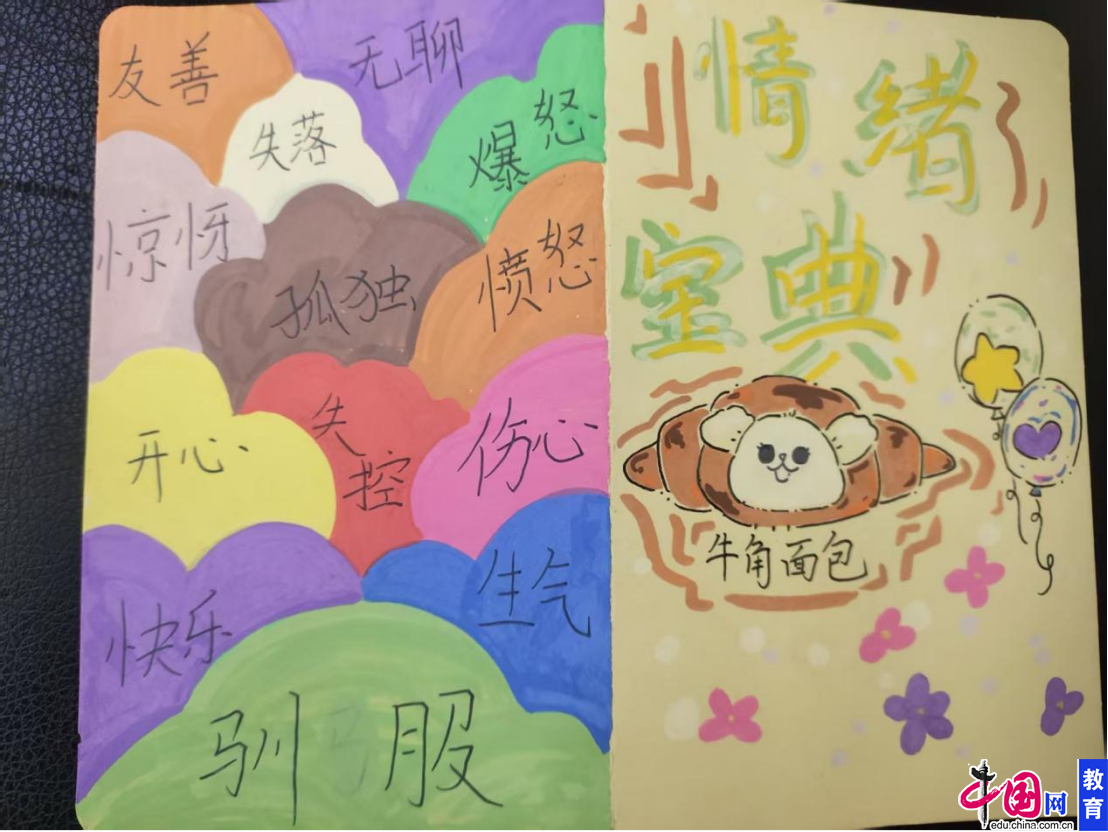 友善
无聊
失落
爆怒
惊讶
孤独
愤怒
开心
失控
伤心
快乐
生气
驯服
情绪
宝典
牛角面包
中国网
教育
edu.china.com.cn